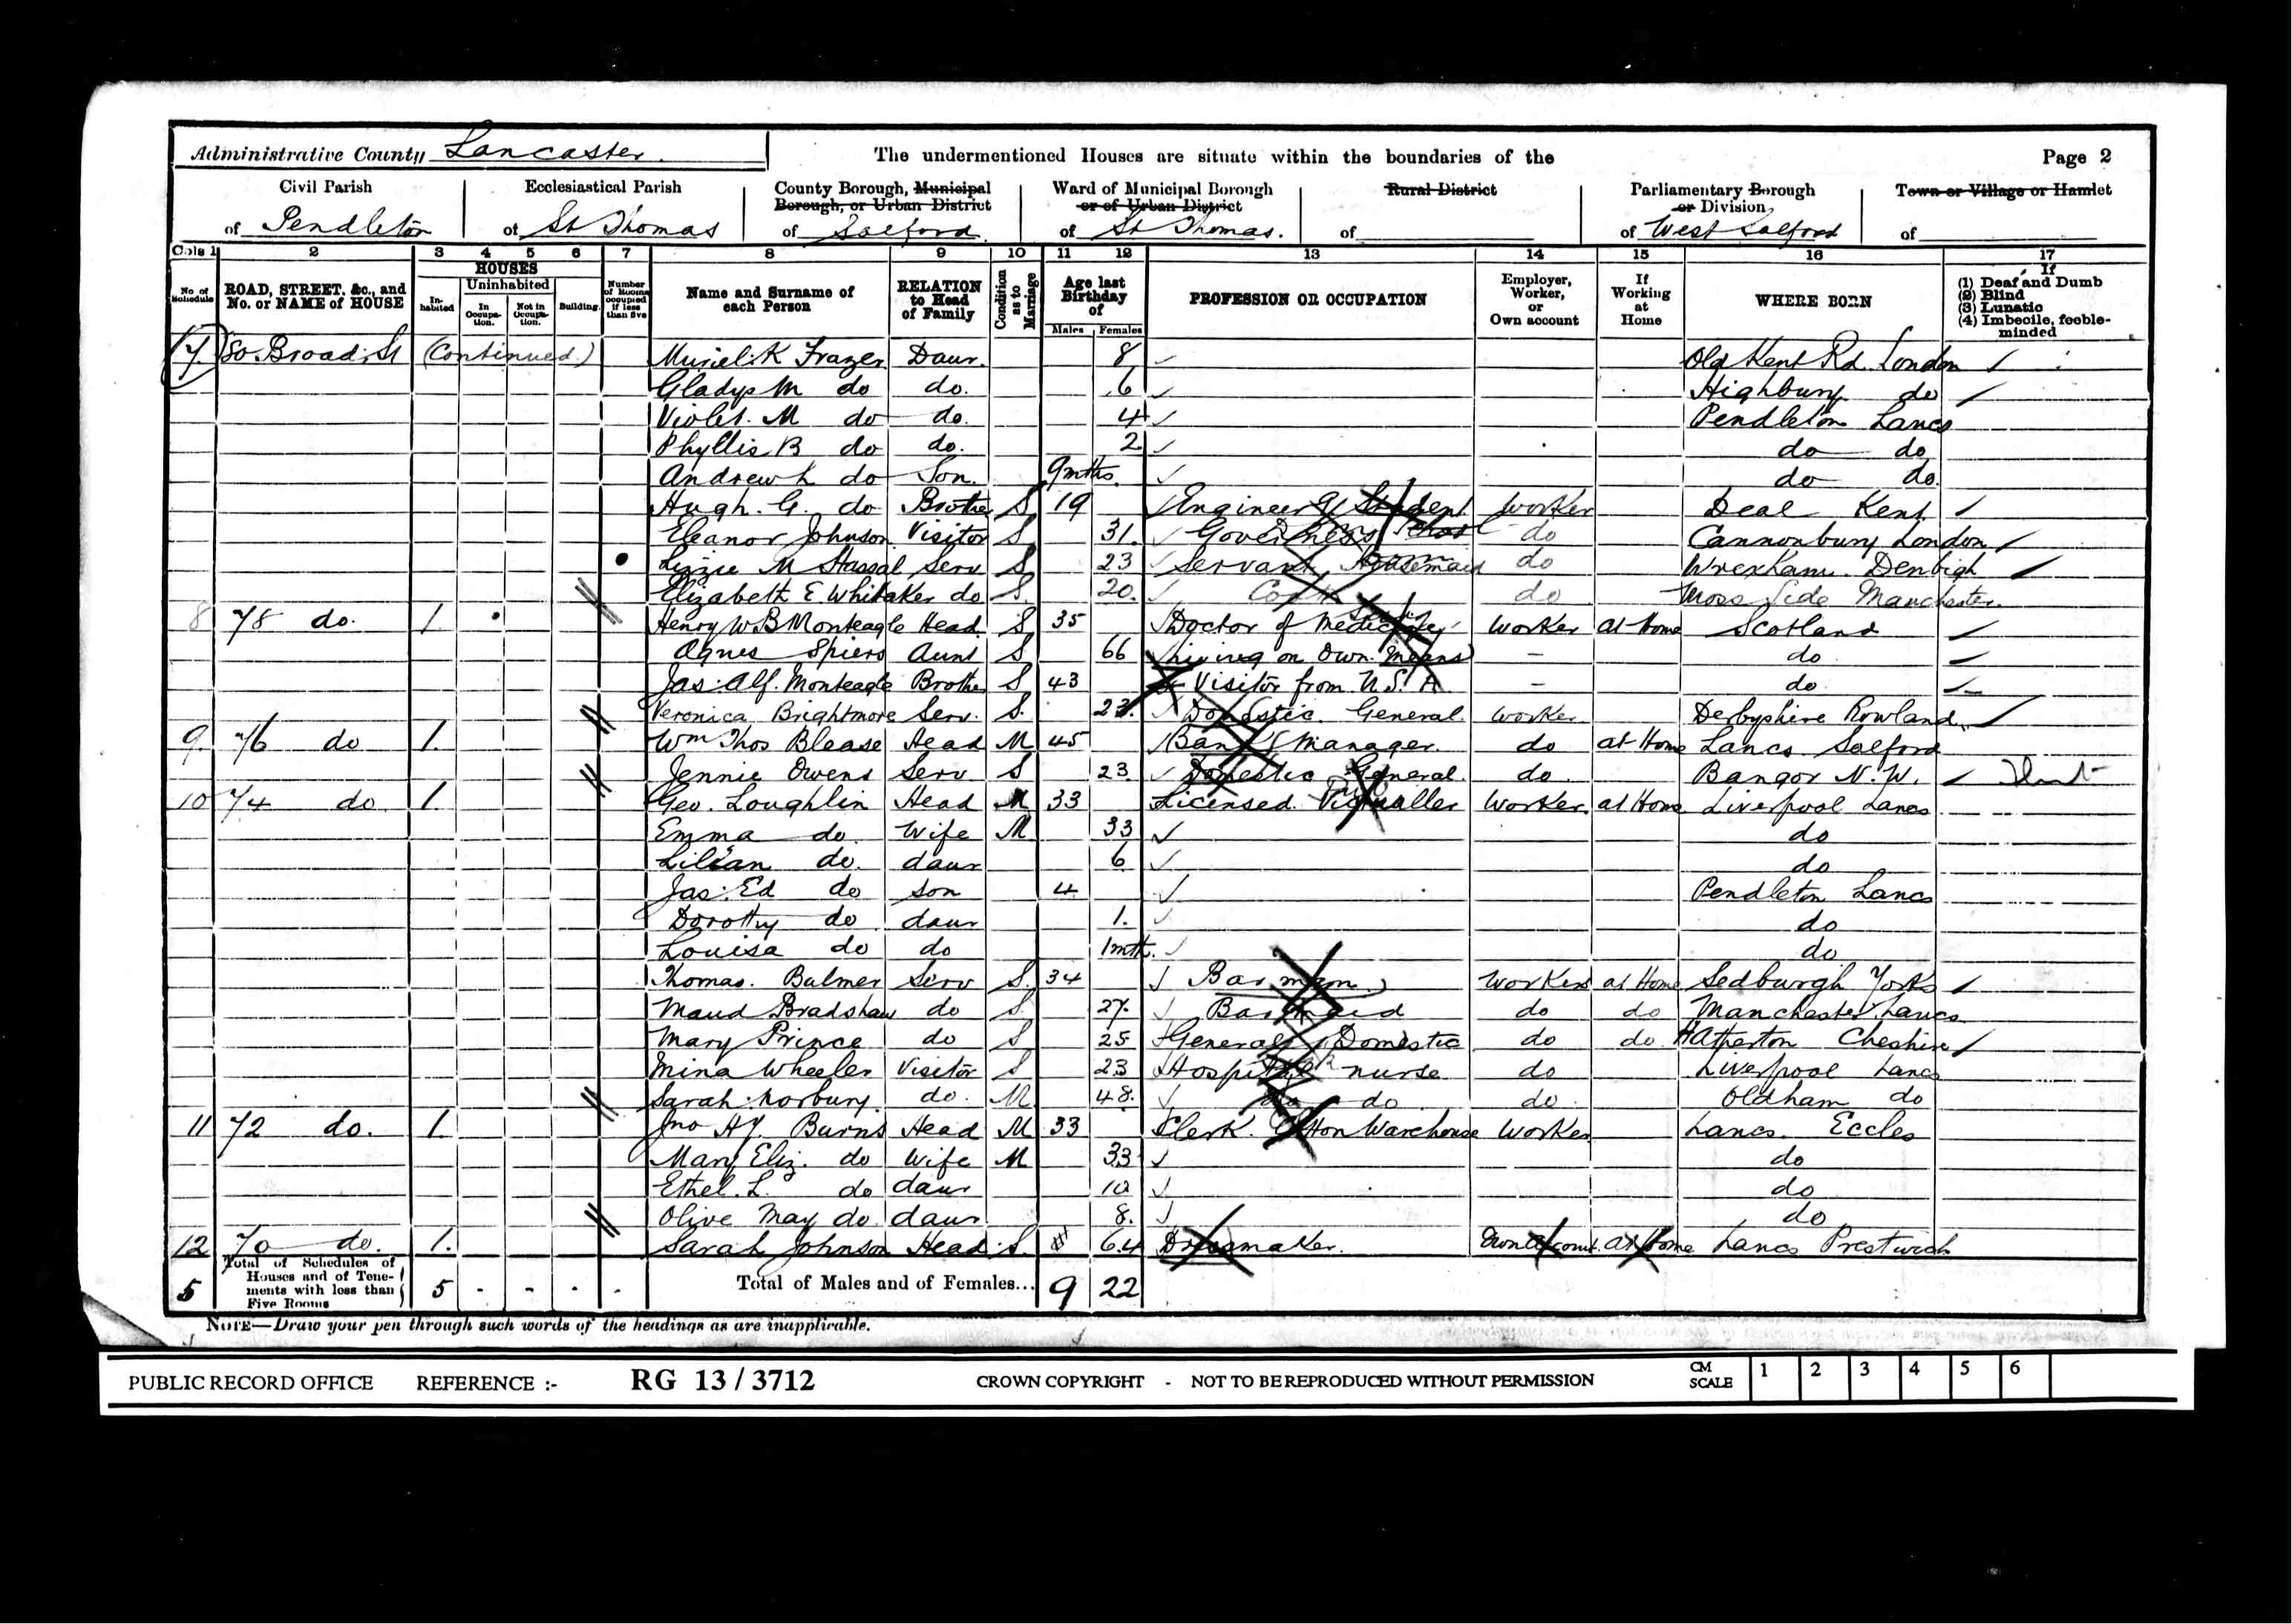 Administrative County Lancaster.
The undermentioned Houses are situate within the boundaries of the
Page 2
Civil Parish of Pendleton
Ecclesiastical Parish of St Thomas
County Borough, Municipal Borough, or Urban District of Salford.
Ward of Municipal Borough or of Urban District of St Thomas.
Rural District of
Parliamentary Borough or Division of West Salford
Town or Village or Hamlet of
Cols 1 2 3 4 5 6 7 8 9 10 11 12 13 14 15 16 17
No. of Schedule
ROAD, STREET, &c., and No. or NAME of HOUSE
HOUSES
Inhabited
Uninhabited
In Occupation.
Not in Occupation.
Building.
Number of Rooms occupied if less than five
Name and Surname of each Person
RELATION to Head of Family
Condition as to Marriage
Age last Birthday of
Males Females
PROFESSION OR OCCUPATION
Employer, Worker, or Own account
If Working at Home
WHERE BORN
If
(1) Deaf and Dumb
(2) Blind
(3) Lunatic
(4) Imbecile, feeble-minded
7 80. Broad St (Continued.) Muriel K Frazer Daur. 8 Old Kent Rd. London
Gladys M do do. 6 Highbury do
Violet. M do do. 4 Pendleton Lancs
Phyllis B do do. 2 do do
Andrew L do Son. 9mths. do do.
Hugh. G. do Brother S 19 Engineer Student Worker Deal Kent
Eleanor Johnson Visitor S 31. Governess School do Cannonbury London
Lizzie M Hassal Serv S 23 Servant Housemaid do Wrexham. Denbigh
Elizabeth E. Whitaker do S. 20. Cook do Moss Side Manchester.
8 78 do. 1. Henry W B Monteagle Head S 35 Doctor of Medicine Worker at Home Scotland
Agnes Spiers Aunt S 66 Living on Own Means – do
Jas: Alf. Monteagle Brother S 43 Visitor from U.S. A – do
Veronica Brightmore Serv. S. 23. Domestic General Worker Derbyshire Rowland
9. 76 do 1. Wm Thos Blease Head M 45 Bank Manager. do at Home Lancs. Salford
Jennie Owens Serv S 23 Domestic General. do Bangor N. W.
10 74 do 1. Geo. Loughlin Head M 33 Licensed Victualler Worker at Home Liverpool Lancs
Emma do. Wife M 33 do
Lilian do. daur 6 do
Jas: Ed do son 4 Pendleton Lancs
Dorothy do daur 1. do
Louisa do do 1mth. do
Thomas. Bulmer Serv S. 34 Barman Worker at Home Sedburgh Yorks
Maud Bradshaw do S. 27. Barmaid do do Manchester Lancs
Mary Prince do S 25 General Domestic do do Hatherton Cheshire
Mina Wheeler Visitor S 23 Hospital nurse do Liverpool Lancs
Sarah Norbury. do. M 48. do do do. Oldham do
11 72 do. 1. Jno Hy Burns Head M 33 Clerk. Cotton Warehouse Worker Lancs. Eccles
Mary Eliz. do Wife M 33 do
Ethel. L. do daur 10 do
Olive May do. daur 8. do
12 70 do. 1. Sarah Johnson Head S. 64 Dressmaker. Own Account at Home Lancs Prestwich
5 Total of Schedules of Houses and of Tenements with less than Five Rooms 5 - - - - Total of Males and of Females... 9 22
NOTE—Draw your pen through such words of the headings as are inapplicable.
PUBLIC RECORD OFFICE REFERENCE :- RG 13 / 3712 CROWN COPYRIGHT - NOT TO BE REPRODUCED WITHOUT PERMISSION CM SCALE 1 2 3 4 5 6